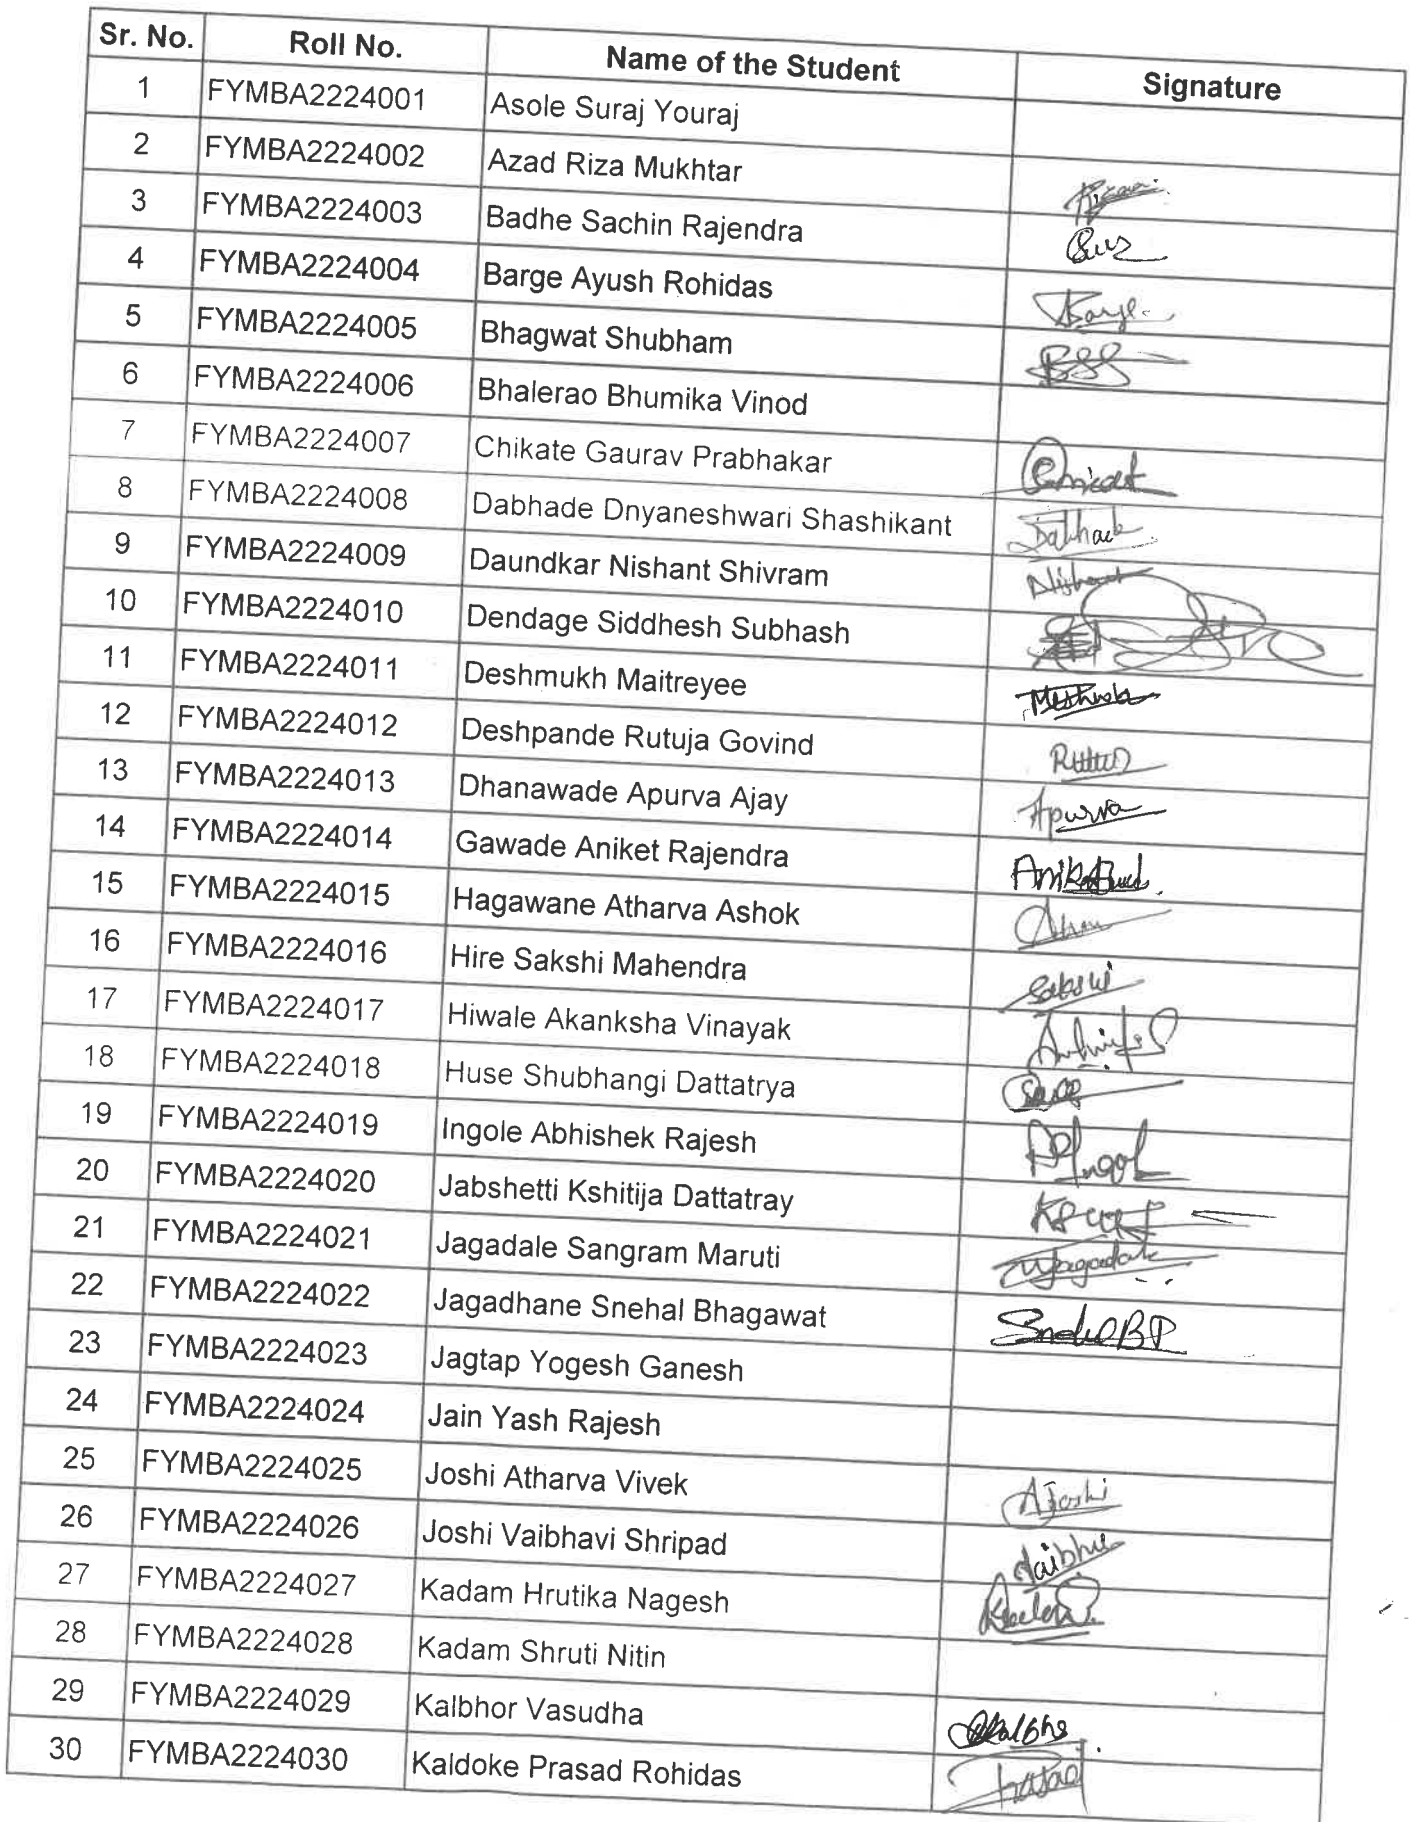 Sr. No. Roll No. Name of the Student Signature
1 FYMBA2224001 Asole Suraj Youraj
2 FYMBA2224002 Azad Riza Mukhtar
3 FYMBA2224003 Badhe Sachin Rajendra
4 FYMBA2224004 Barge Ayush Rohidas Barge
5 FYMBA2224005 Bhagwat Shubham BSS
6 FYMBA2224006 Bhalerao Bhumika Vinod
7 FYMBA2224007 Chikate Gaurav Prabhakar
8 FYMBA2224008 Dabhade Dnyaneshwari Shashikant
9 FYMBA2224009 Daundkar Nishant Shivram
10 FYMBA2224010 Dendage Siddhesh Subhash
11 FYMBA2224011 Deshmukh Maitreyee
12 FYMBA2224012 Deshpande Rutuja Govind
13 FYMBA2224013 Dhanawade Apurva Ajay Apurva
14 FYMBA2224014 Gawade Aniket Rajendra
15 FYMBA2224015 Hagawane Atharva Ashok
16 FYMBA2224016 Hire Sakshi Mahendra Sakshi
17 FYMBA2224017 Hiwale Akanksha Vinayak
18 FYMBA2224018 Huse Shubhangi Dattatrya
19 FYMBA2224019 Ingole Abhishek Rajesh
20 FYMBA2224020 Jabshetti Kshitija Dattatray
21 FYMBA2224021 Jagadale Sangram Maruti
22 FYMBA2224022 Jagadhane Snehal Bhagawat
23 FYMBA2224023 Jagtap Yogesh Ganesh
24 FYMBA2224024 Jain Yash Rajesh
25 FYMBA2224025 Joshi Atharva Vivek AJoshi
26 FYMBA2224026 Joshi Vaibhavi Shripad
27 FYMBA2224027 Kadam Hrutika Nagesh
28 FYMBA2224028 Kadam Shruti Nitin
29 FYMBA2224029 Kalbhor Vasudha
30 FYMBA2224030 Kaldoke Prasad Rohidas Prasad